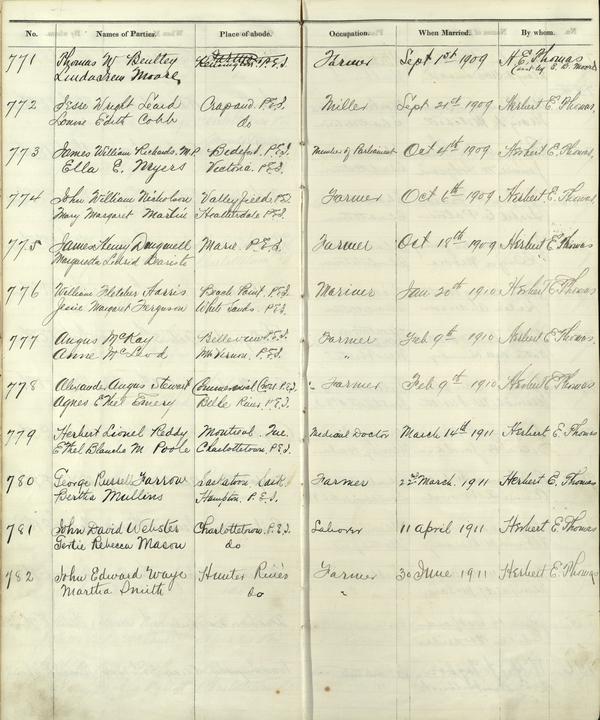 No. Names of Parties. Place of abode. Occupation. When Married. By whom.
771 Thomas W Bentley Farmer Sept 1st 1909 H E Thomas
Moore
772 Jesse Wright Leard Crapaud P.E.I. Miller Sept 21st 1909 Herbert E. Thomas,
Louise Edith Cobb do
773 James William Richards. M.P. Bideford. P.E.I. Member of Parliament Oct 4th 1909 Herbert E. Thomas,
Ella E. Meyers Victoria. P.E.I.
774 John William Nicholson Valleyfield P.E.I. Farmer Oct 6th 1909 Herbert E. Thomas,
Mary Margaret Martin Heatherdale P.E.I.
775 James Henry Dingwell Marie. P.E.I. Farmer Oct 18th 1909 Herbert E Thomas
776 William Fletcher Harris Beach Point. P.E.I. Mariner Jan 20th 1910 Herbert E Thomas
Jessie Margaret Ferguson White Sands. P.E.I.
777 Angus McKay Belleview P.E.I. Farmer Feb 9th 1910 Herbert E. Thomas.
Annie McLeod Mt Vernon. P.E.I. "
778 Alexander Angus Stewart Commercial Cross. P.E.I. " Farmer Feb 9th 1910 Herbert E Thomas
Agnes Ethel Emery Belle River. P.E.I.
779 Herbert Lionel Reddy Montreal. Que. Medical Doctor March 14th 1911 Herbert E. Thomas
Ethel Blanche M. Poole Charlottetown. P.E.I.
780 George Russell Farrow Saskatoon Sask. Farmer 22nd March. 1911 Herbert E. Thomas
Bertha Mullins Hampton. P.E.I.
781 John David Webster Charlottetown. P.E.I. Laborer 11 April 1911 Herbert E Thomas
Gertie Rebecca Mason do
782 John Edward Waye Hunter River Farmer 30 June 1911 Herbert E. Thomas
Martha Smith do "